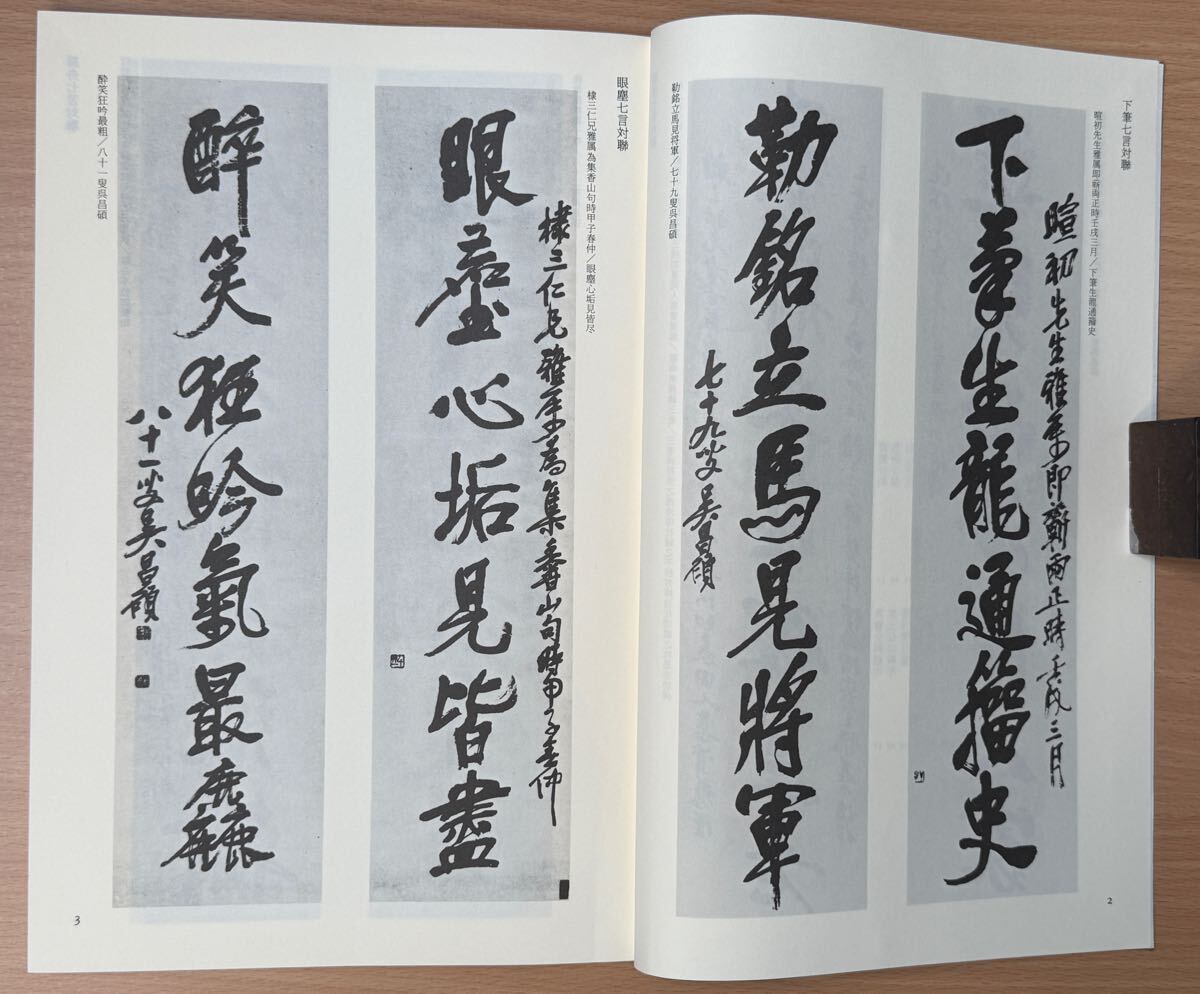 下筆七言対聯
暄初先生雅属即蘄両正時壬戌三月／下筆生龍通籀史
暄初先生雅屬即蘄兩正時壬戌三月
下筆生龍通籀史
勒銘立馬見將軍
七十九叟吳昌碩
勒銘立馬見将軍／七十九叟呉昌碩
2
眼塵七言対聯
棣三仁兄雅属為集香山句時甲子春仲／眼塵心垢見皆尽
棣三仁兄雅屬為集香山句時甲子春仲
眼塵心垢見皆盡
醉笑狂吟氣最麤
八十一叟吳昌碩
酔笑狂吟最粗／八十一叟呉昌碩
3